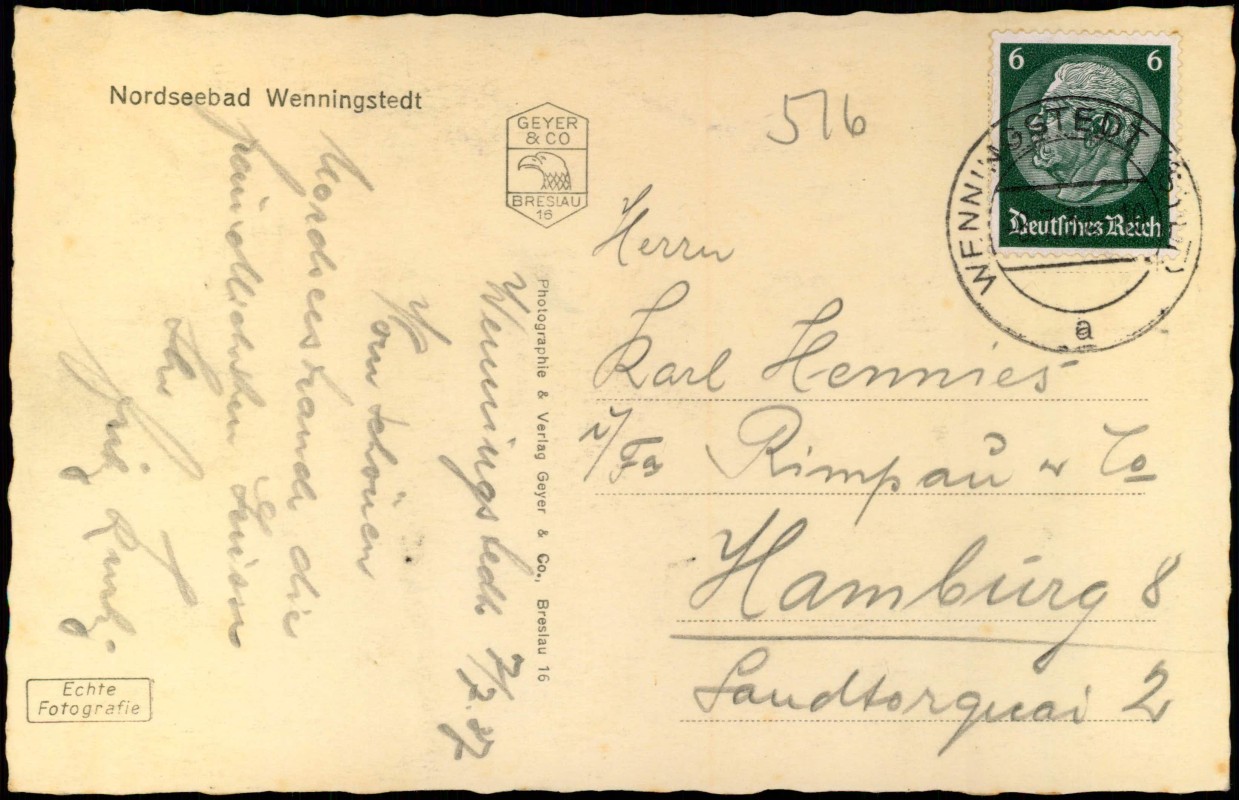 Nordseebad Wenningstedt
GEYER
& CO
BRESLAU
16
516
6 6
Deutsches Reich
WENNINGSTEDT (SYLT)
a
Wenningstedt 7/7. 37
Vom schönen
Nordseestrande die
freundlichsten Grüsse
Ihr
Photographie & Verlag Geyer & Co., Breslau 16
Herrn
Karl Hennies
i/Fa Rimpau & Co
Hamburg 8
Sandtorquai 2
Echte
Fotografie